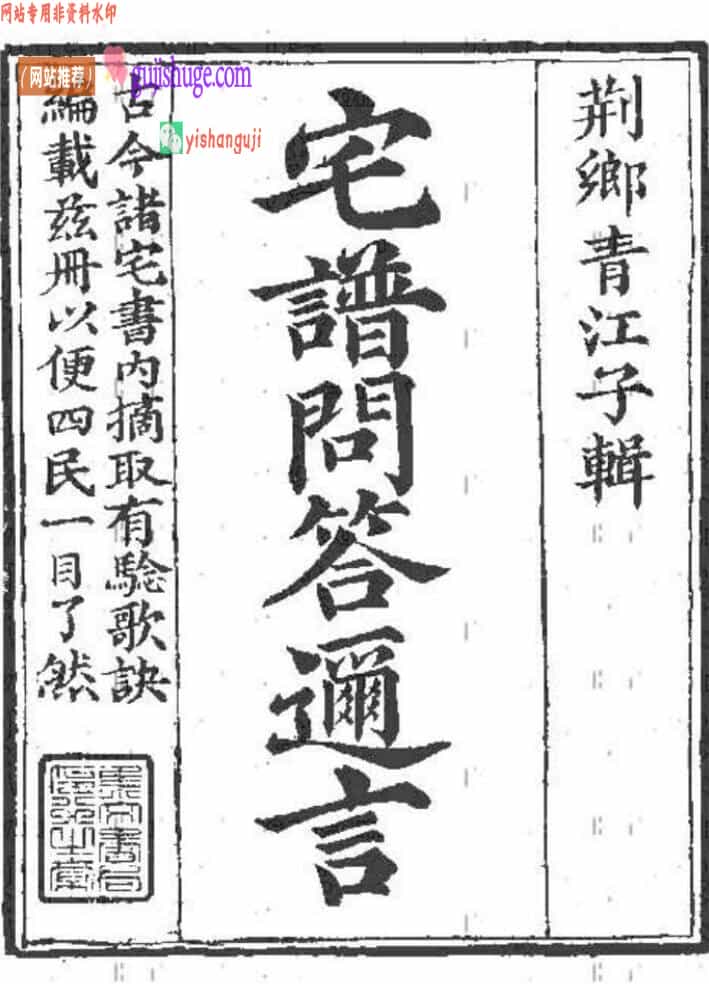 网站专用非资料水印
（网站推荐）
gujishuge.com
yishanguji
荆鄉青江子輯
宅譜問答邇言
古今諸宅書內摘取有騐歌訣
編載茲冊以便四民一目了然